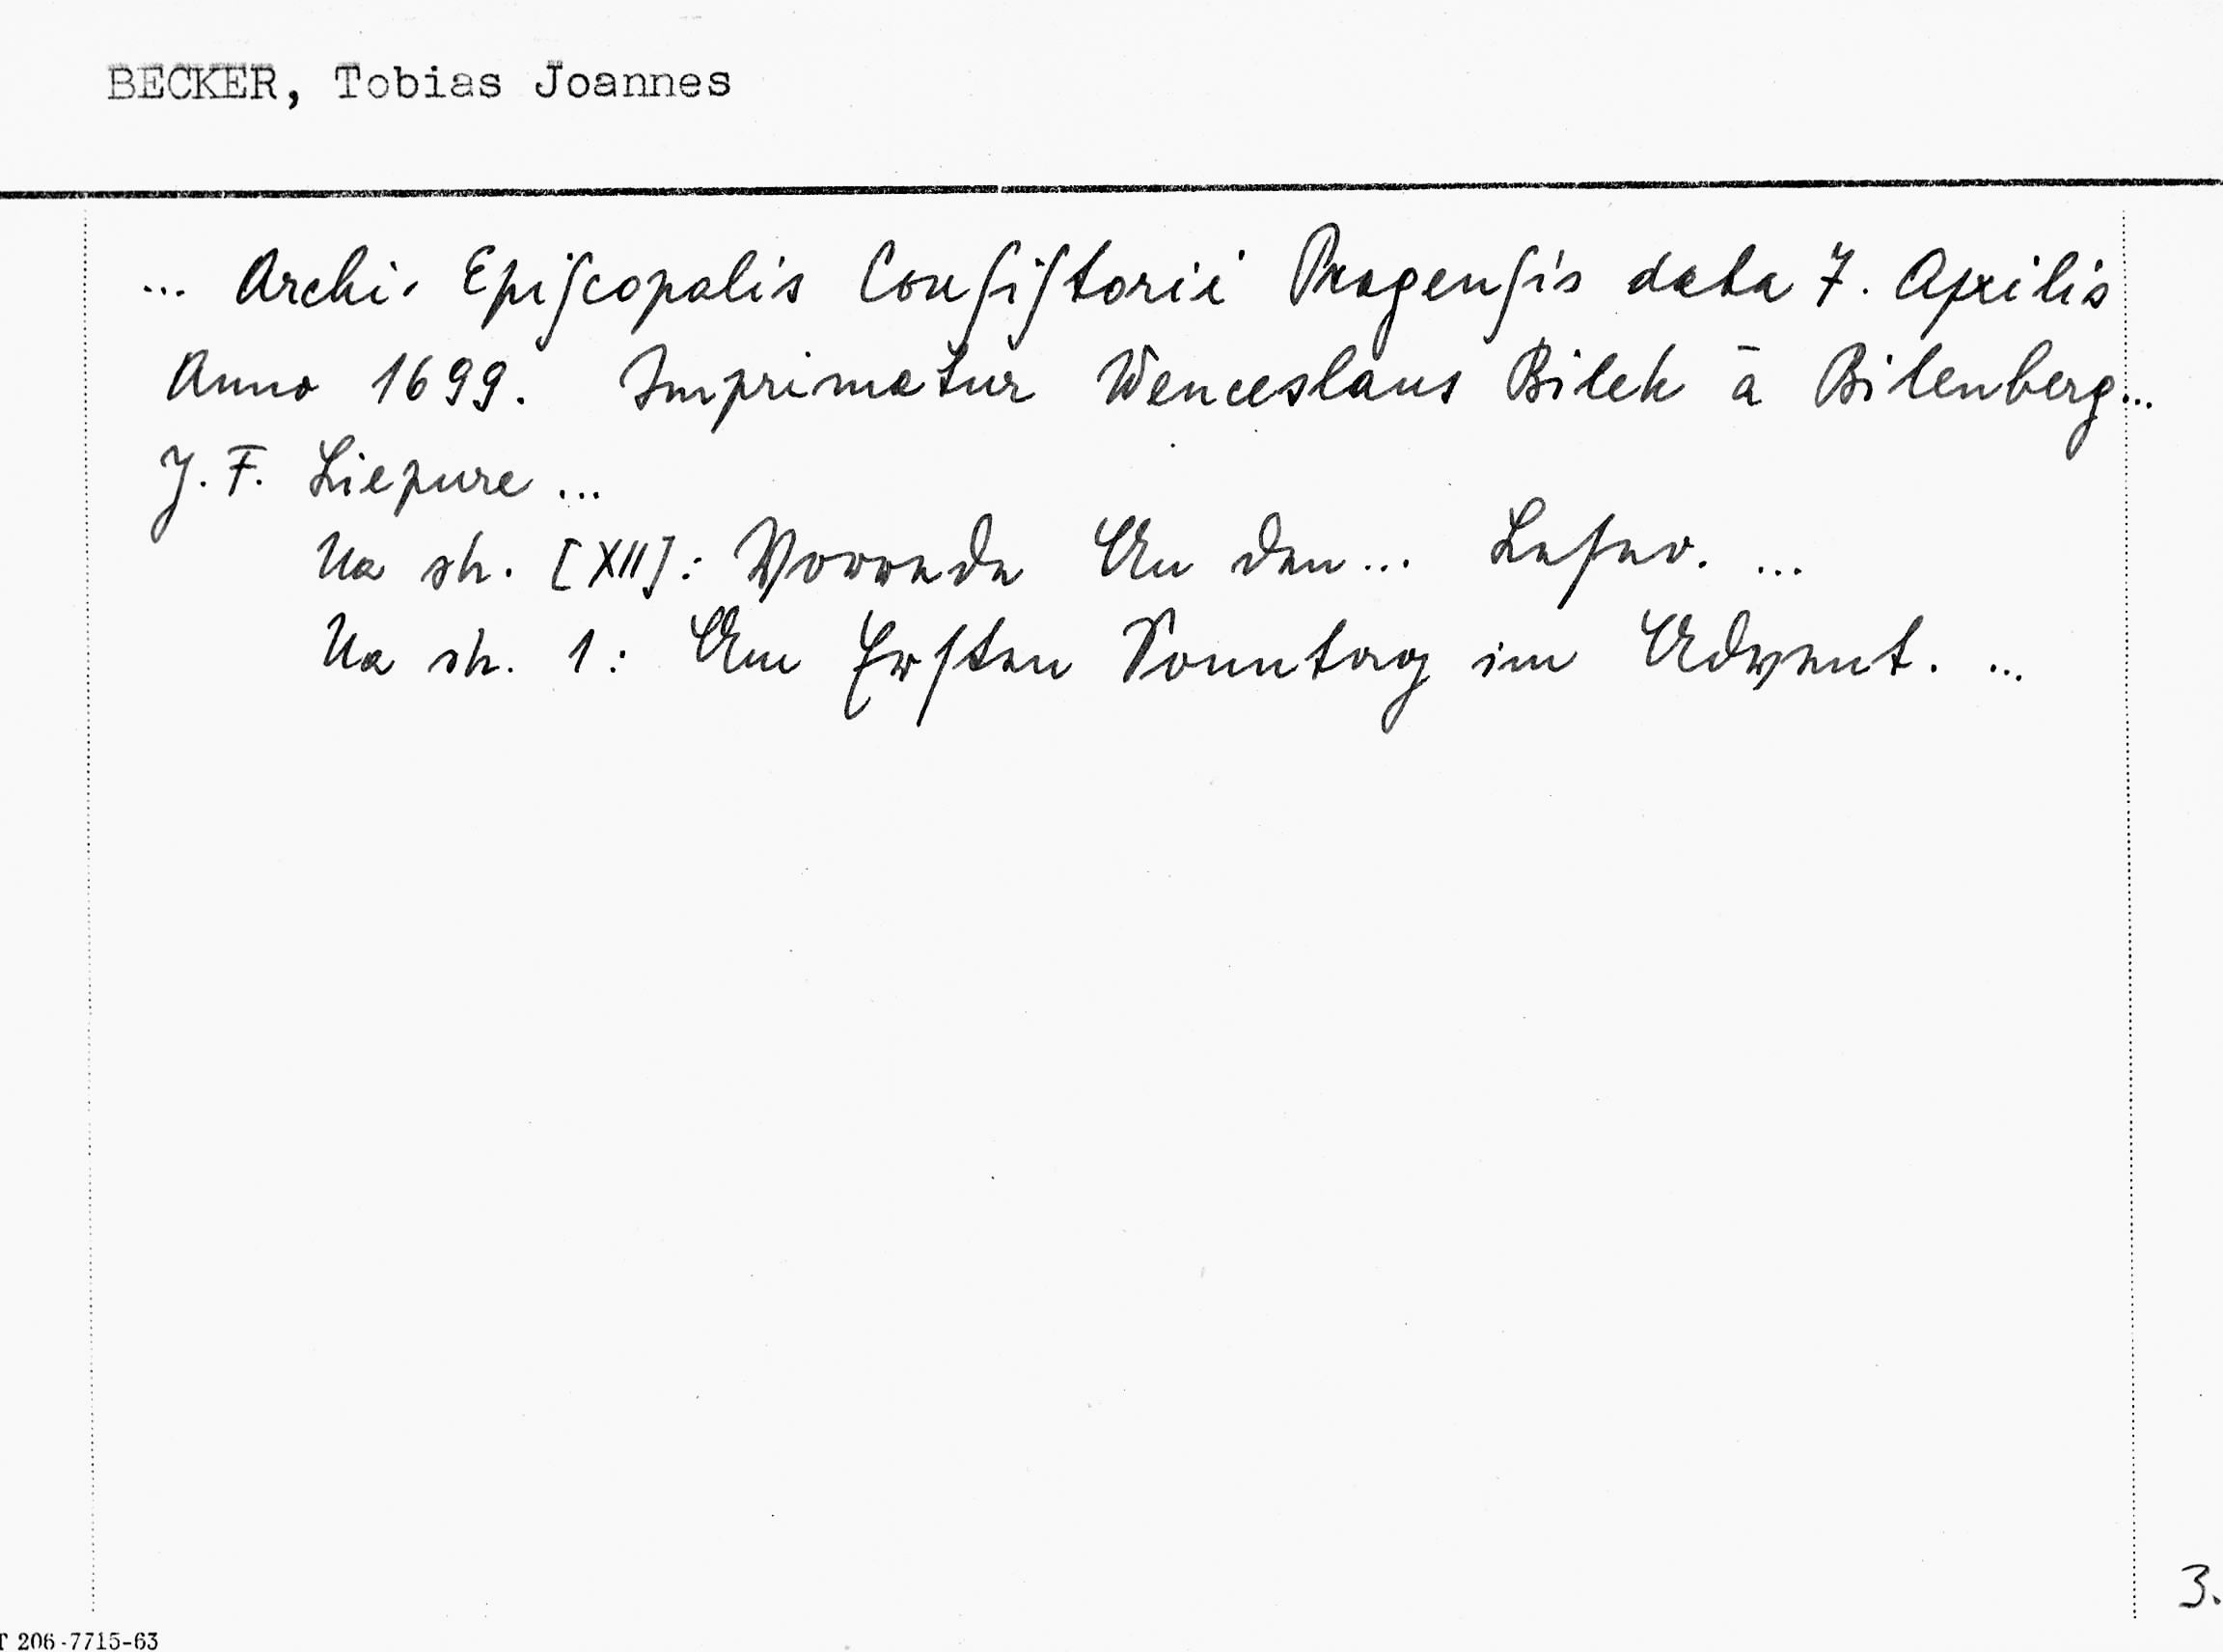 BECKER, Tobias Joannes
... Archi- Epiſcopalis Conſiſtorii Pragenſis data 7. Aprilis
Anno 1699. Imprimatur Wenceslaus Bilek ā Bilenberg...
J. F. Liepure ...
Na str. [XII]: Vorrede An den... Leſer. ...
Na str. 1: Am Erſten Sonntag im Advent. ...
3.
T 206-7715-63